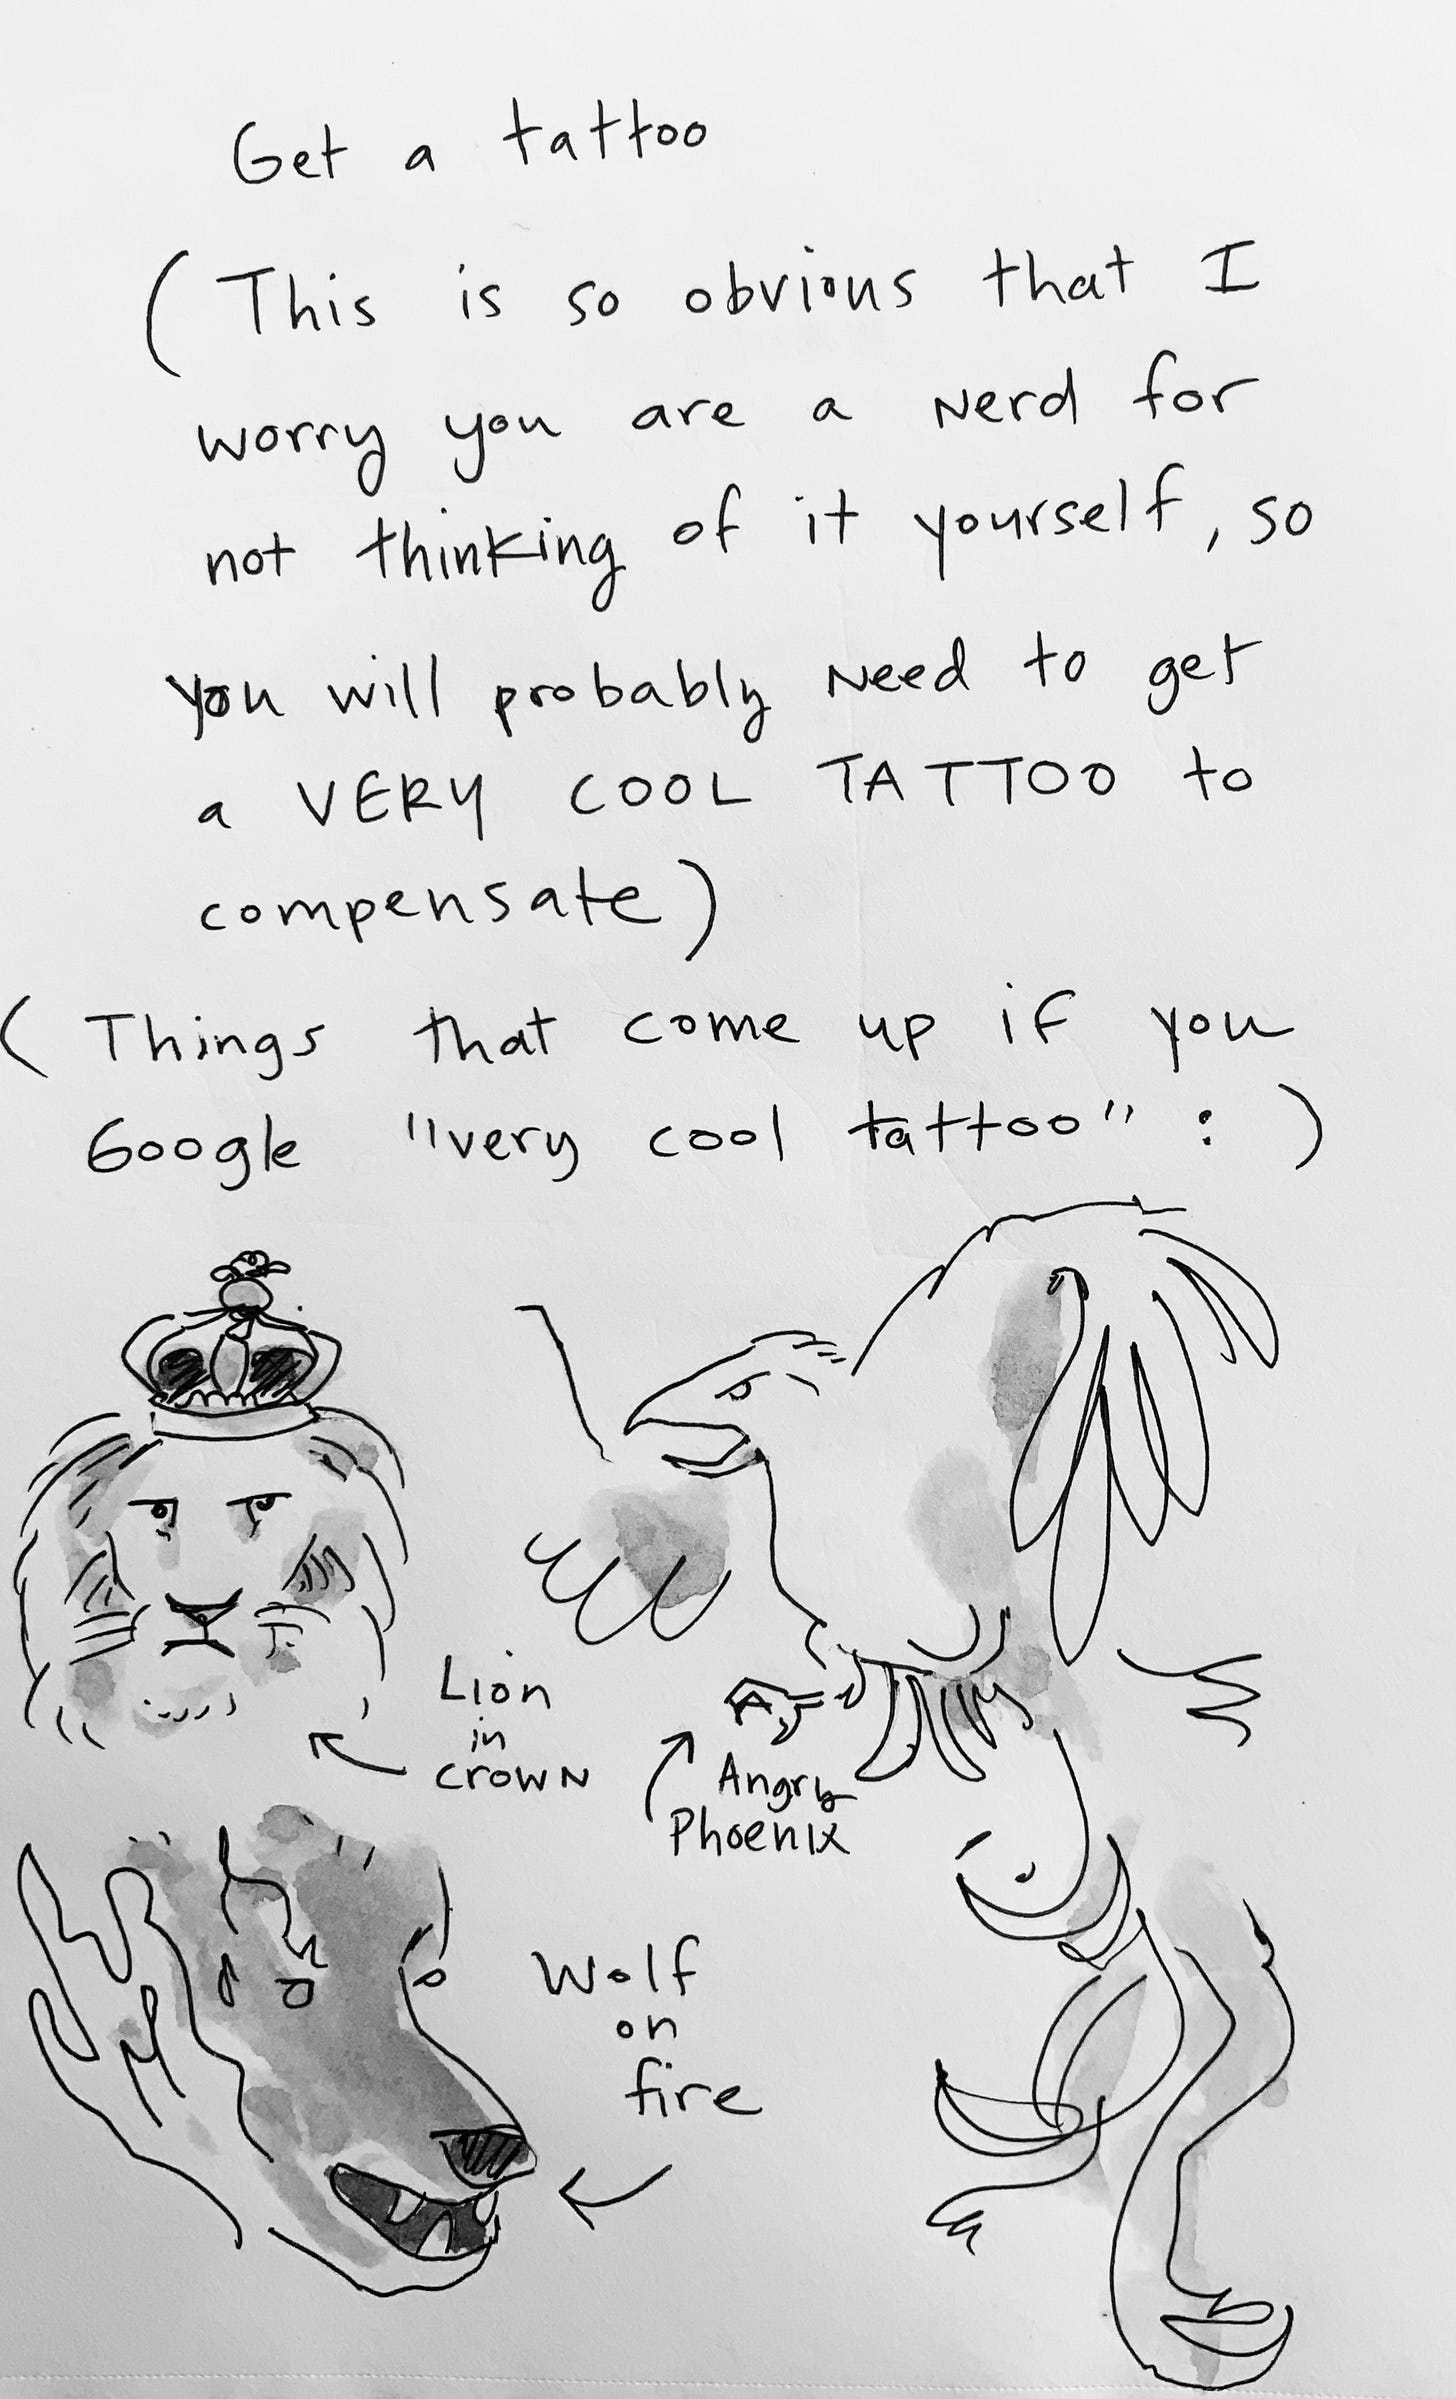 Get a tattoo
(This is so obvious that I
worry you are a nerd for
not thinking of it yourself, so
you will probably need to get
a VERY COOL TATTOO to
compensate)
(Things that come up if you
Google "very cool tattoo":)
Lion
in
crown
Angry
Phoenix
Wolf
on
fire